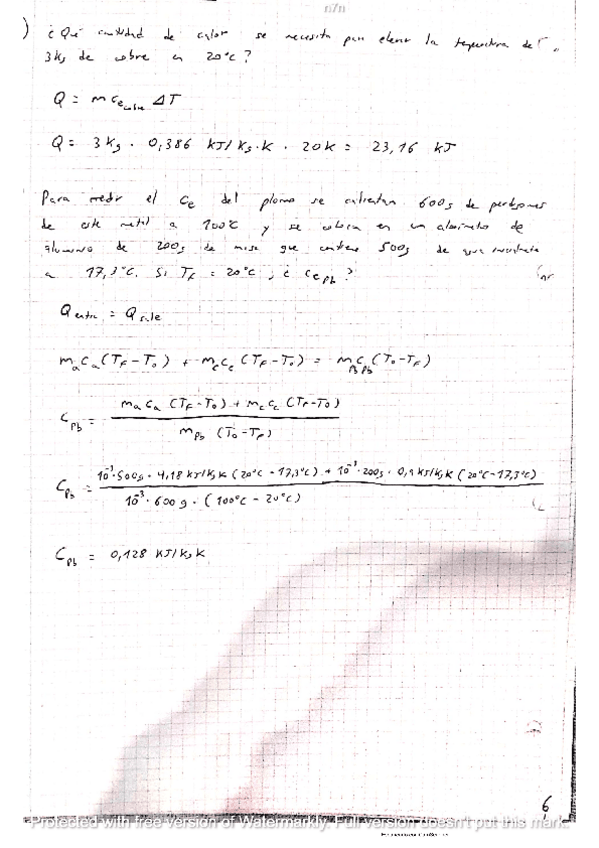 n7n
) ¿Qué cantidad de calor se necesita para elevar la temperatura de
3Kg de cobre en 20°C?
Q = m Ce cobre ΔT
Q = 3Kg · 0,386 KJ/Kg·K · 20K = 23,16 KJ
Para medir el Ce del plomo se calientan 600g de perdigones
de este metal a 100°C y se colocan en un calorímetro de
aluminio de 200g de masa que contiene 500g de agua
a 17,3°C. Si TF = 20°C, ¿CePb?
Q entra = Q sale
ma Ca (TF - To) + mc Cc (TF - To) = mPb CPb (To - TF)
CPb = ma Ca (TF - To) + mc Cc (TF - To)
mPb (To - TF)
CPb = 10⁻³·500g · 4,18 KJ/KgK (20°C - 17,3°C) + 10⁻³·200g · 0,9 KJ/KgK (20°C - 17,3°C)
10⁻³ · 600g · (100°C - 20°C)
CPb = 0,128 KJ/KgK
6
Protected with free version of Watermarkly. Full version doesn't put this mark.